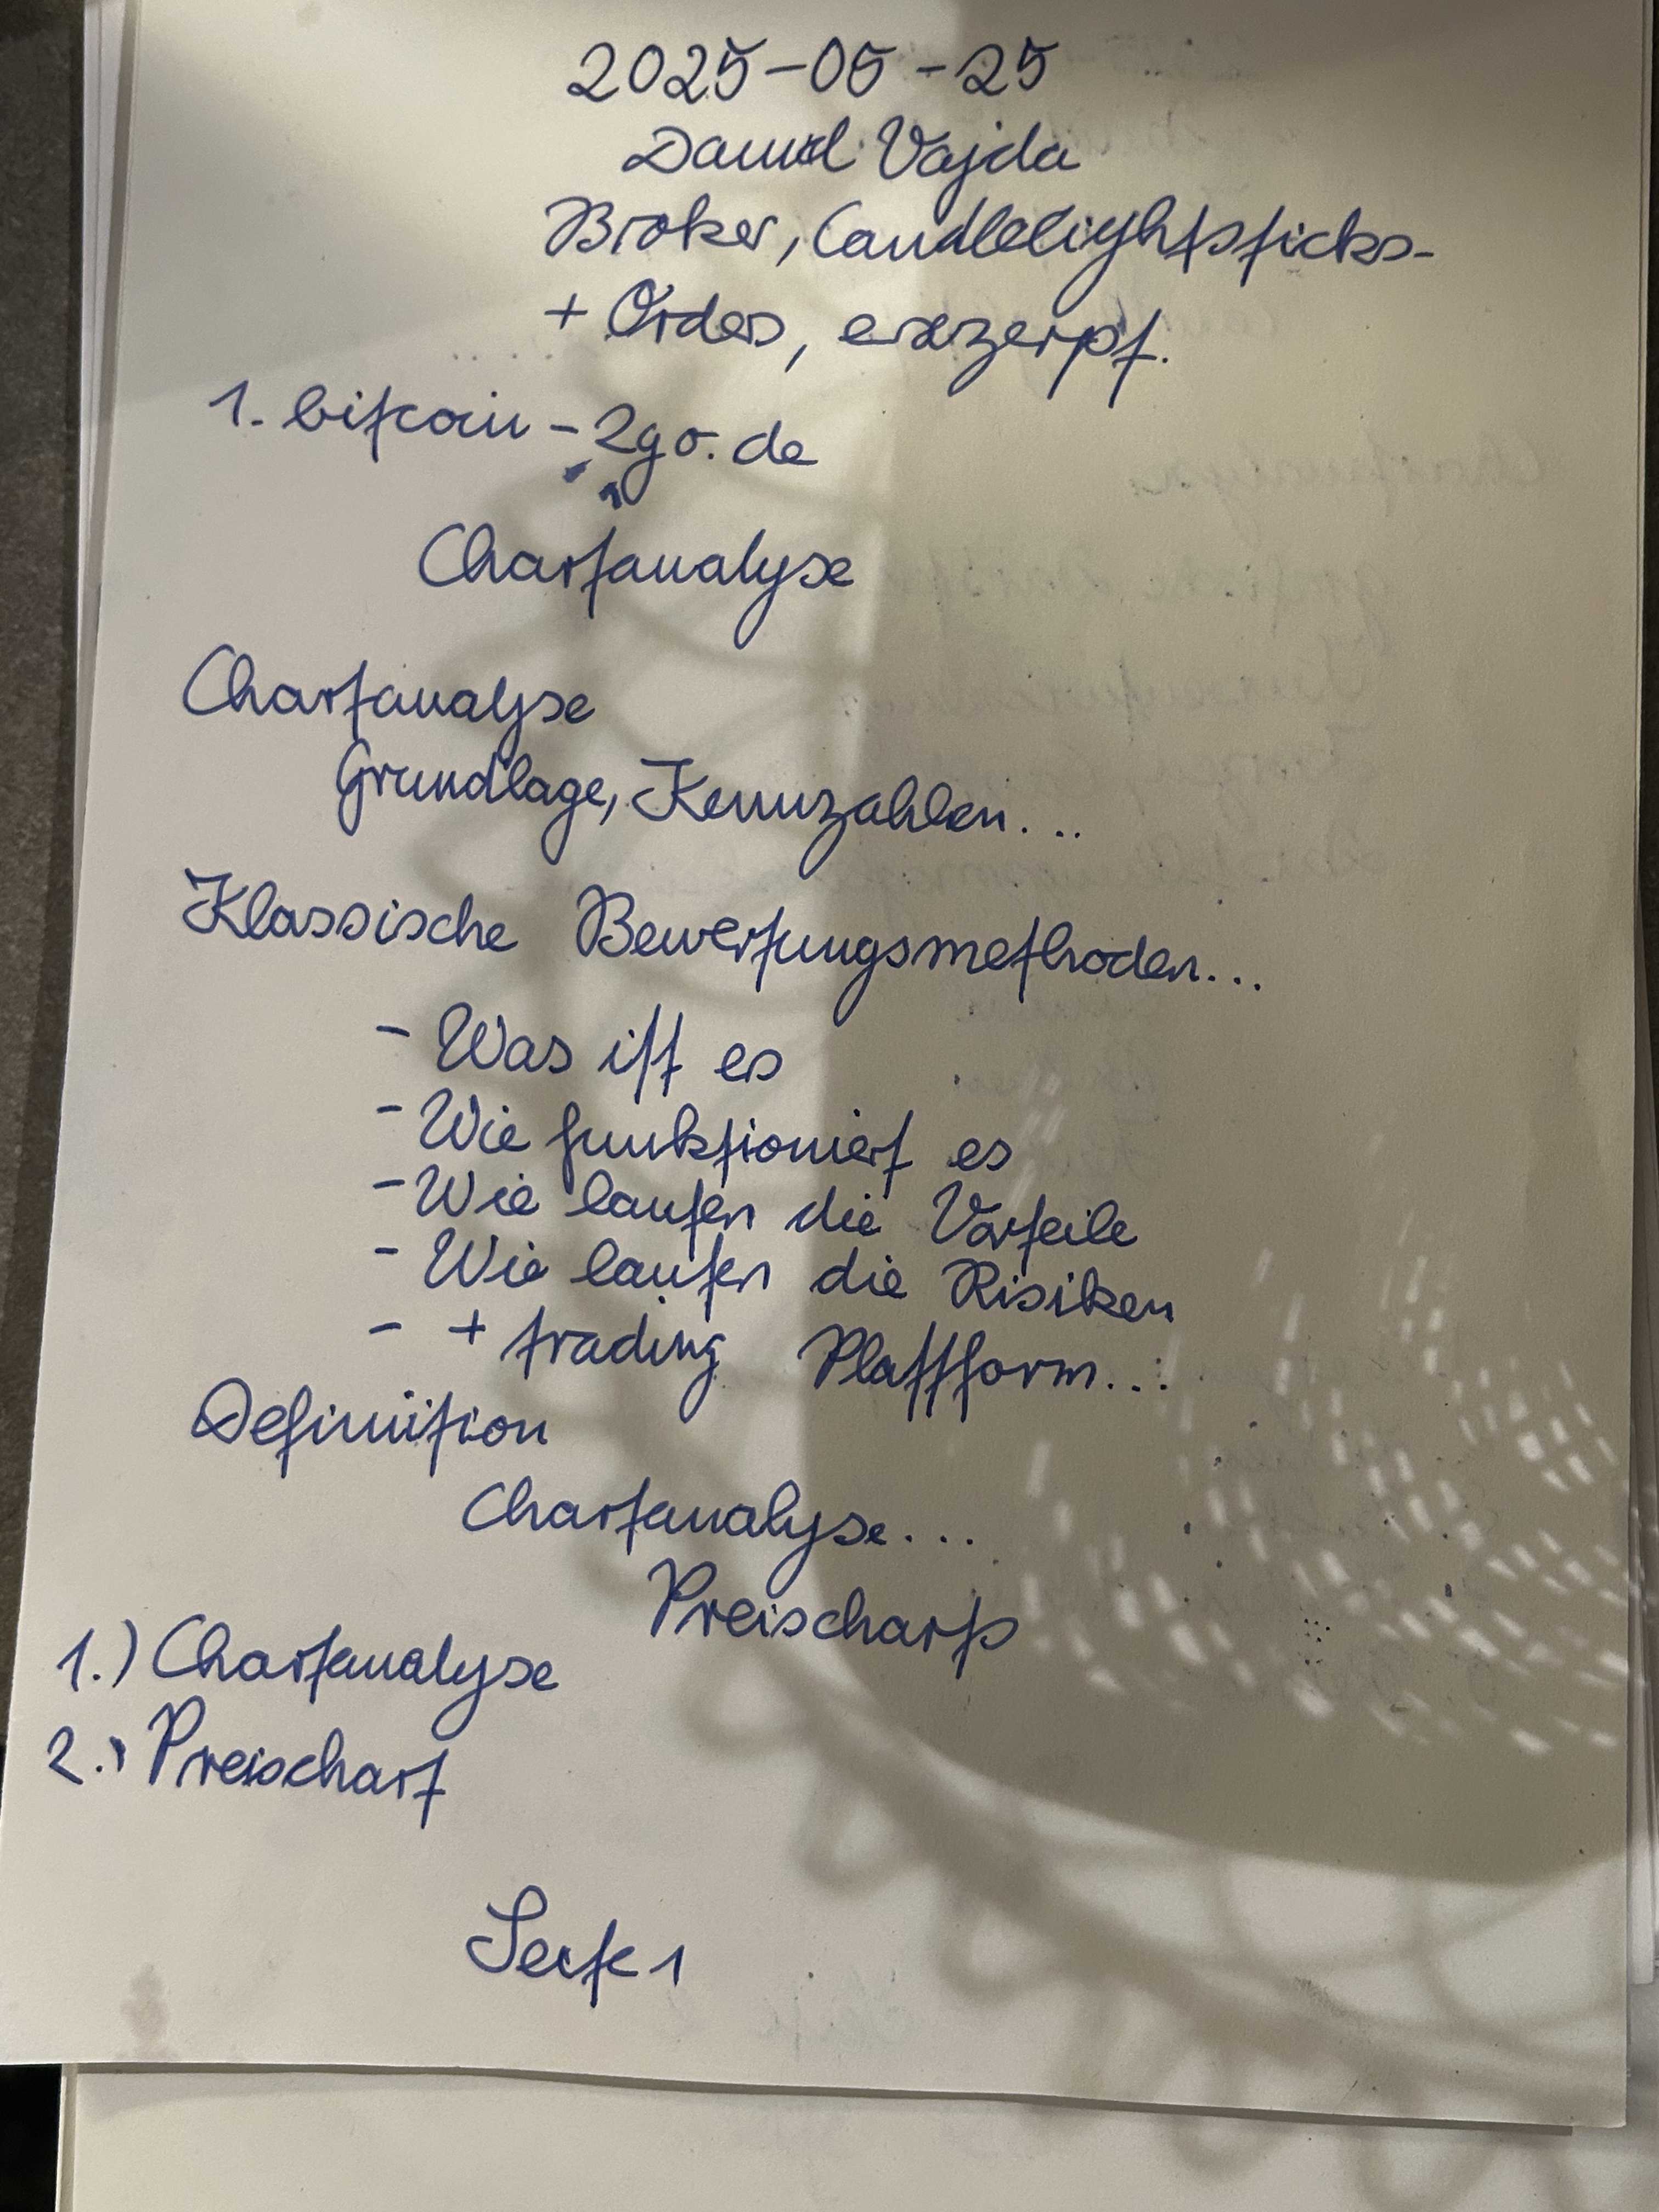 2025-05-25
David Vajda
Broker, Candlelightsticks-
+ Order, exzerpt.
1. bitcoin-2go.de
Chartanalyse
Chartanalyse
Grundlage, Kennzahlen...
Klassische Bewertungsmethoden...
- Was ist es
- Wie funktioniert es
- Wie laufen die Vorteile
- Wie laufen die Risiken
- + trading Plattform...
Definition
Chartanalyse...
Preischarts
1.) Chartanalyse
2.) Preischart
Seite 1